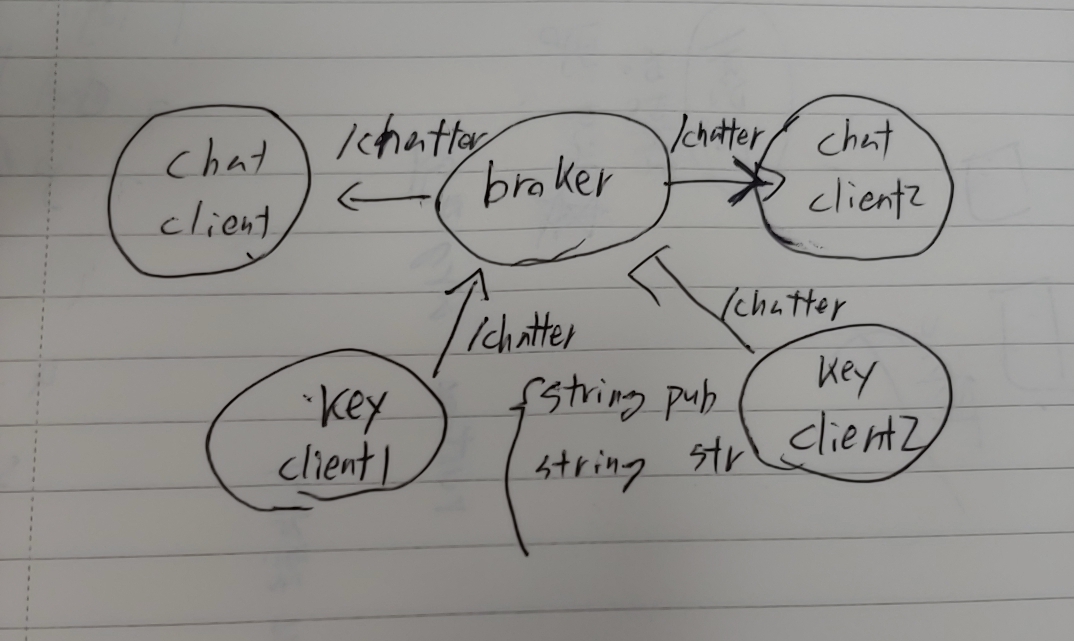 chat
client
/chatter
broker
/chatter
chat
client2
/chatter
/chatter
key
client1
{string pub
string str
key
client2